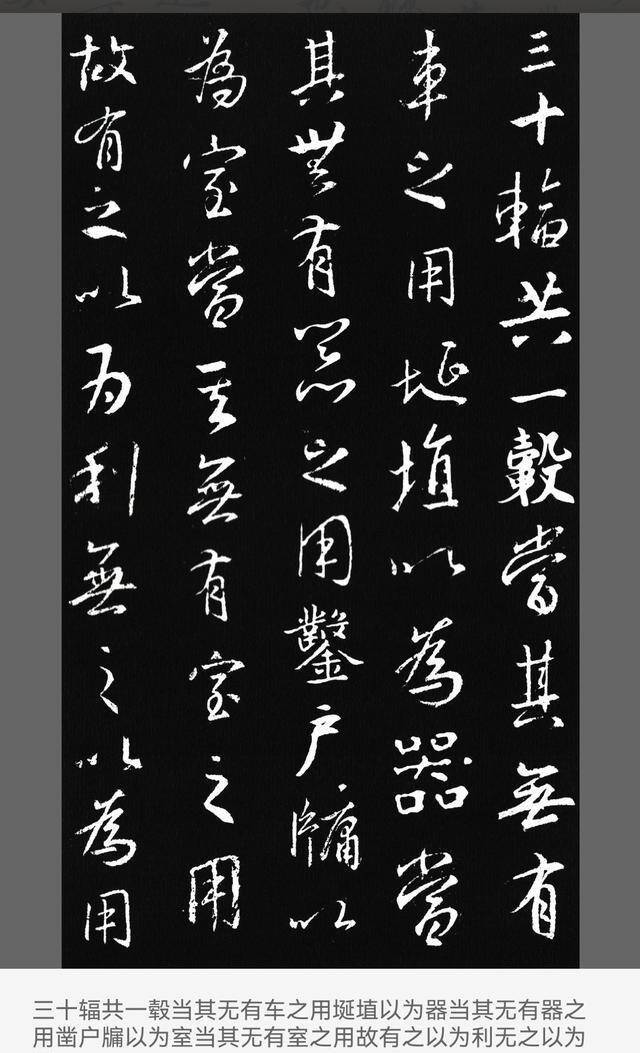 三十輻共一轂當其無有
車之用埏埴以為器當
其無有器之用鑿戶牖以
為室當其無有室之用
故有之以為利無之以為用
三十辐共一毂当其无有车之用埏埴以为器当其无有器之
用凿户牖以为室当其无有室之用故有之以为利无之以为